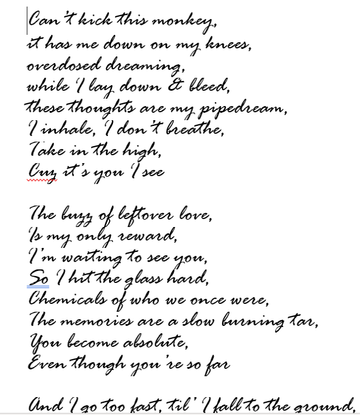 Can't kick this monkey,
it has me down on my knees,
overdosed dreaming,
while I lay down & bleed,
these thoughts are my pipedream,
I inhale, I don't breathe,
Take in the high,
Cuz it's you I see
The buzz of leftover love,
Is my only reward,
I'm waiting to see you,
So I hit the glass hard,
Chemicals of who we once were,
The memories are a slow burning tar,
You become absolute,
Even though you're so far
And I go too fast, til' I fall to the ground,